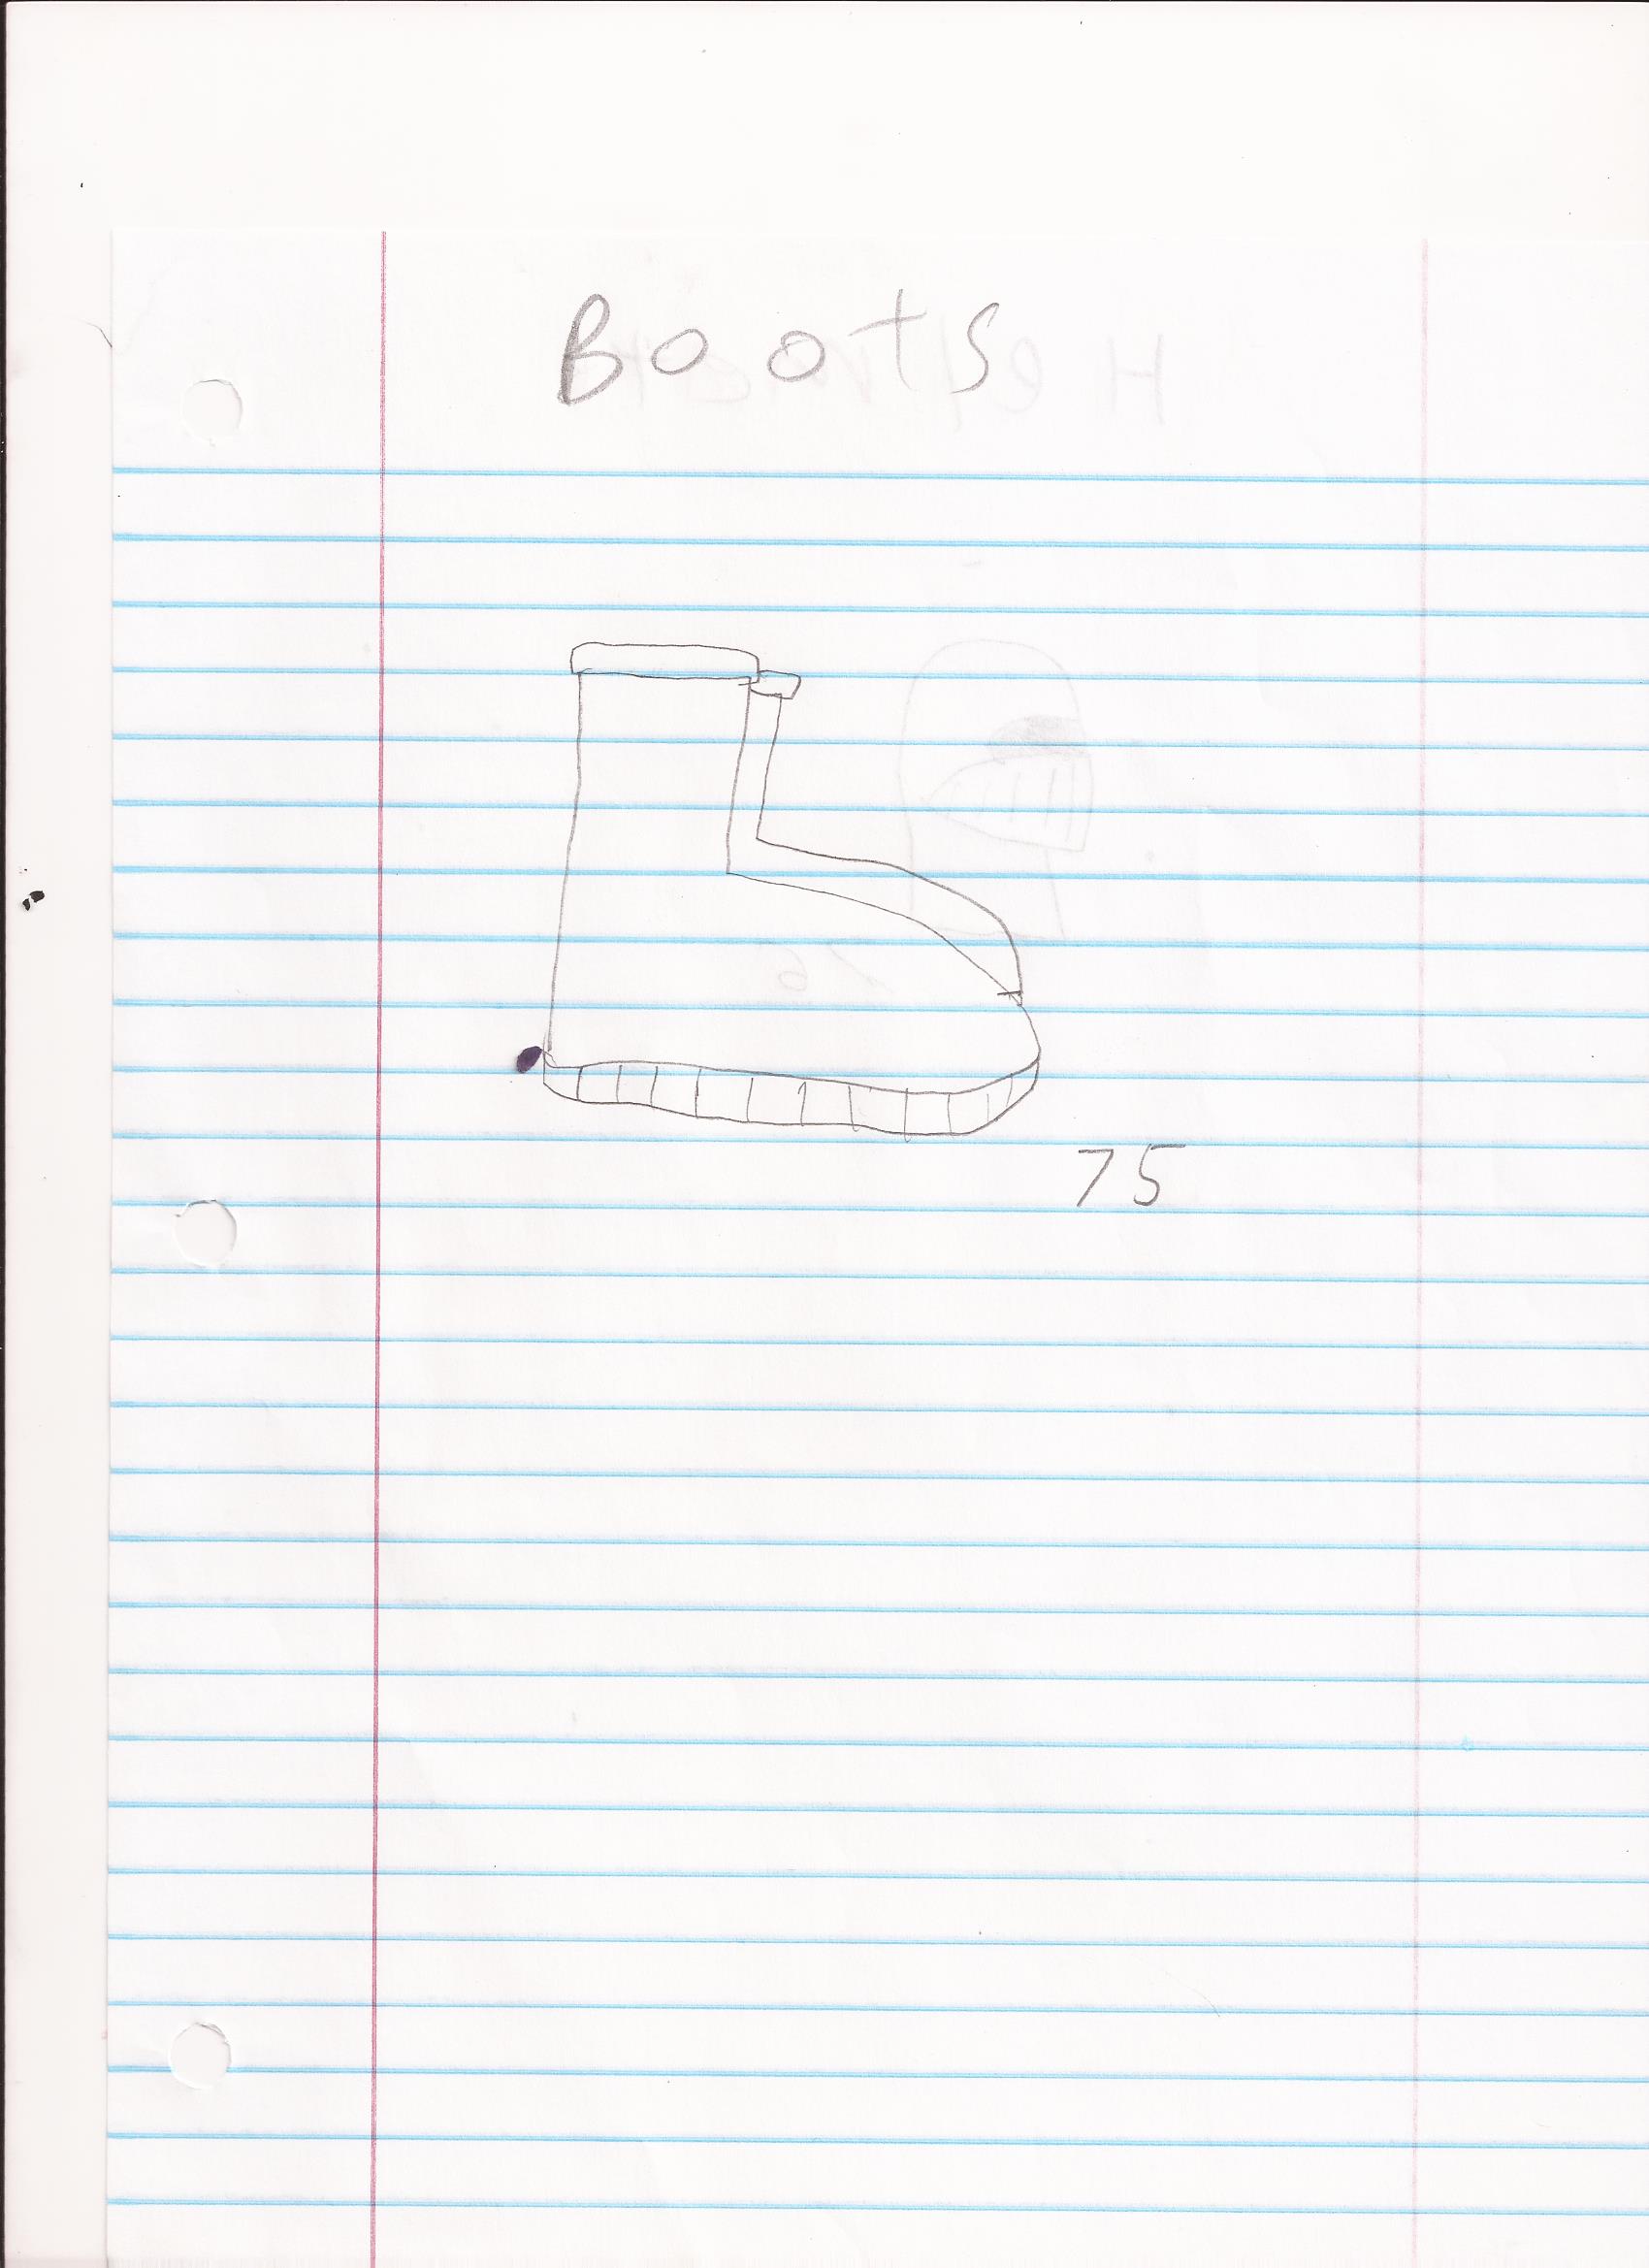 Boots
75